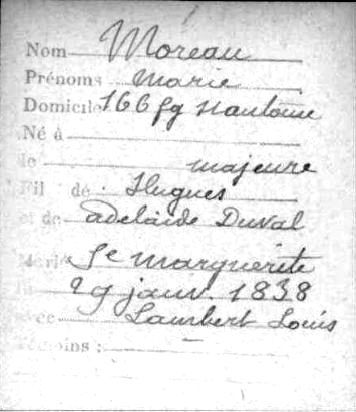 Nom Moreau
Prénoms Marie
Domicile 166 fg St Antoine
Né à
le majeure
Fil de Hugues
et de adelaide Duval
Marié Ste Marguerite
le 29 janv. 1838
avec Lambert Louis
Témoins : —